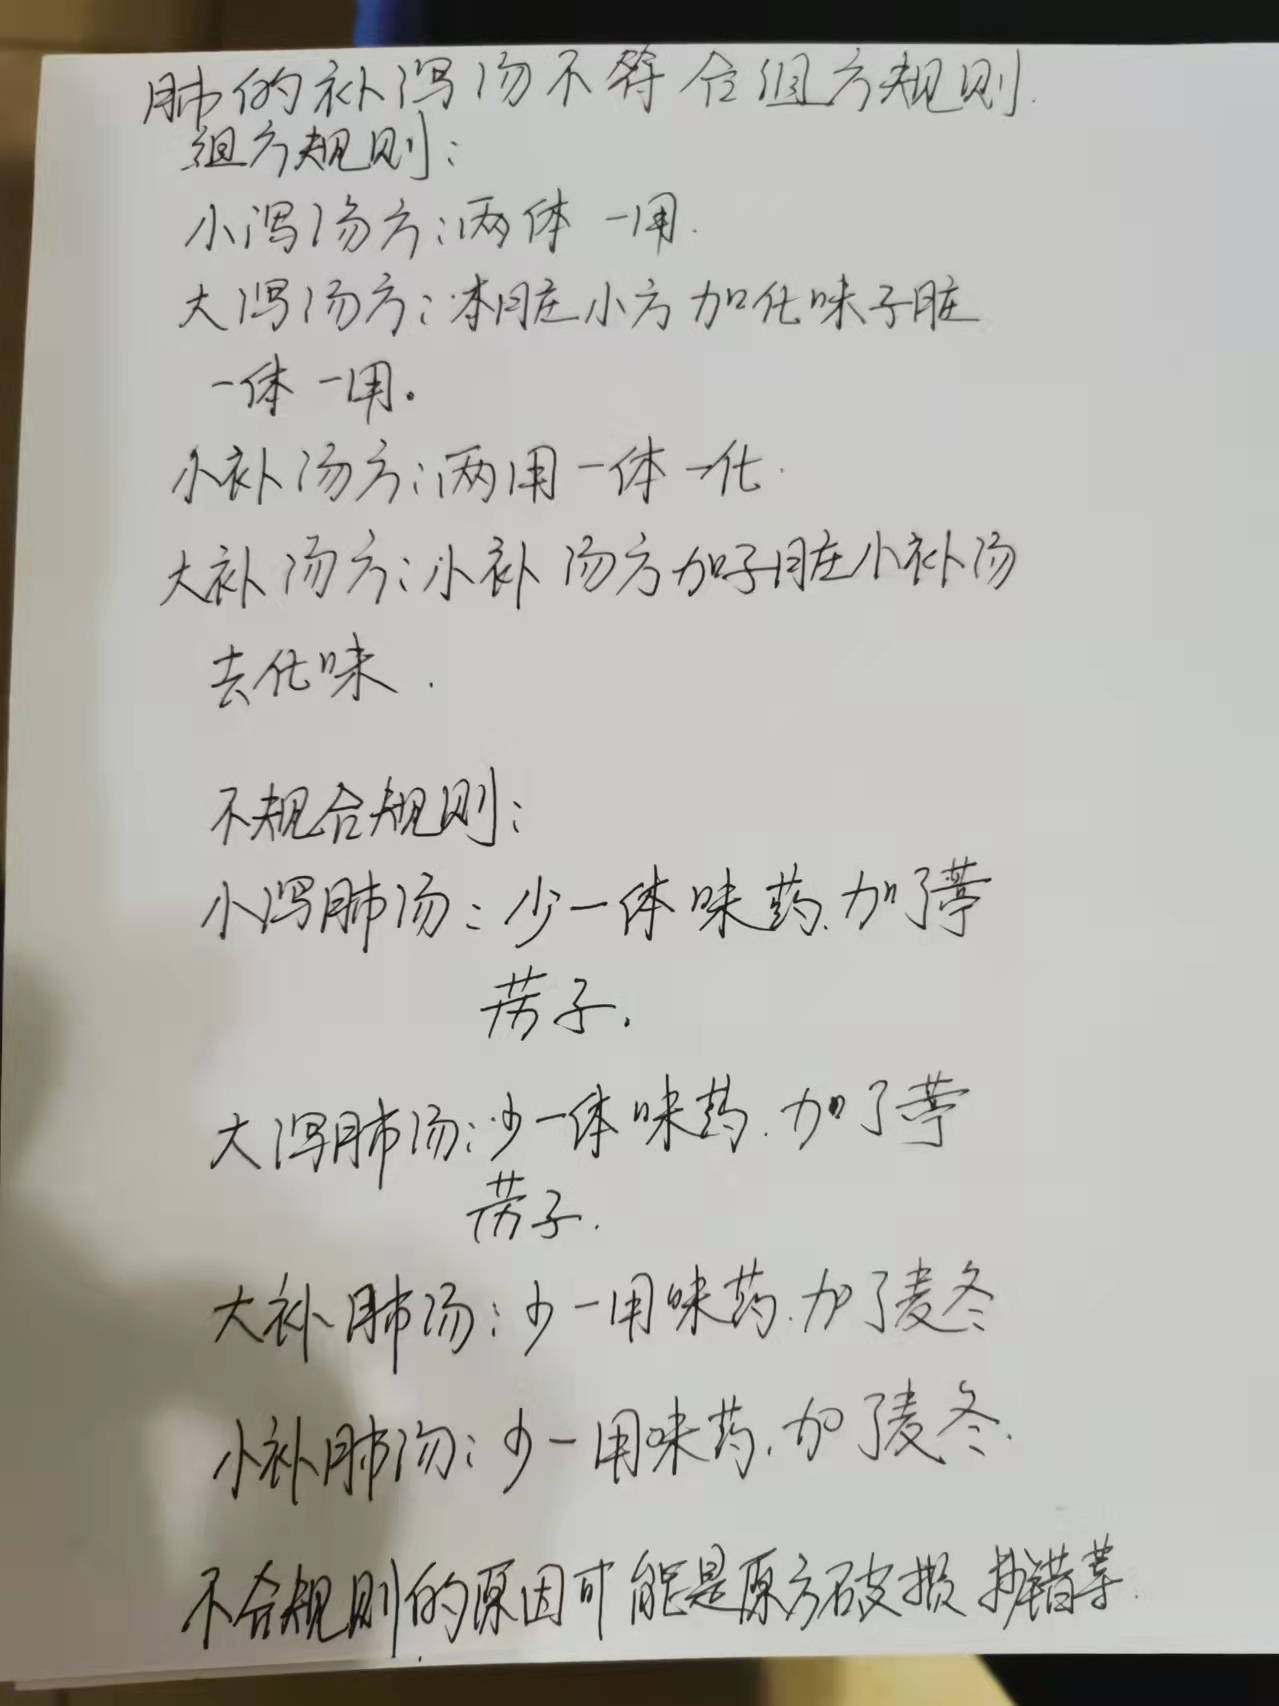 肺的补泻汤不符合组方规则.
组方规则:
小泻汤方:两体一用.
大泻汤方:本脏小方加化味子脏
一体一用。
小补汤方:两用一体一化.
大补汤方:小补汤方加子脏小补汤
去化味.
不规合规则:
小泻肺汤:少一体味药.加了葶
苈子.
大泻肺汤:少一体味药.加了葶
苈子.
大补肺汤:少一用味药.加了麦冬
小补肺汤:少一用味药.加了麦冬.
不合规则的原因可能是原方破损 抄错等.